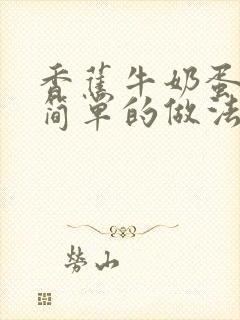 香蕉牛奶蛋
简单的做法
劳山